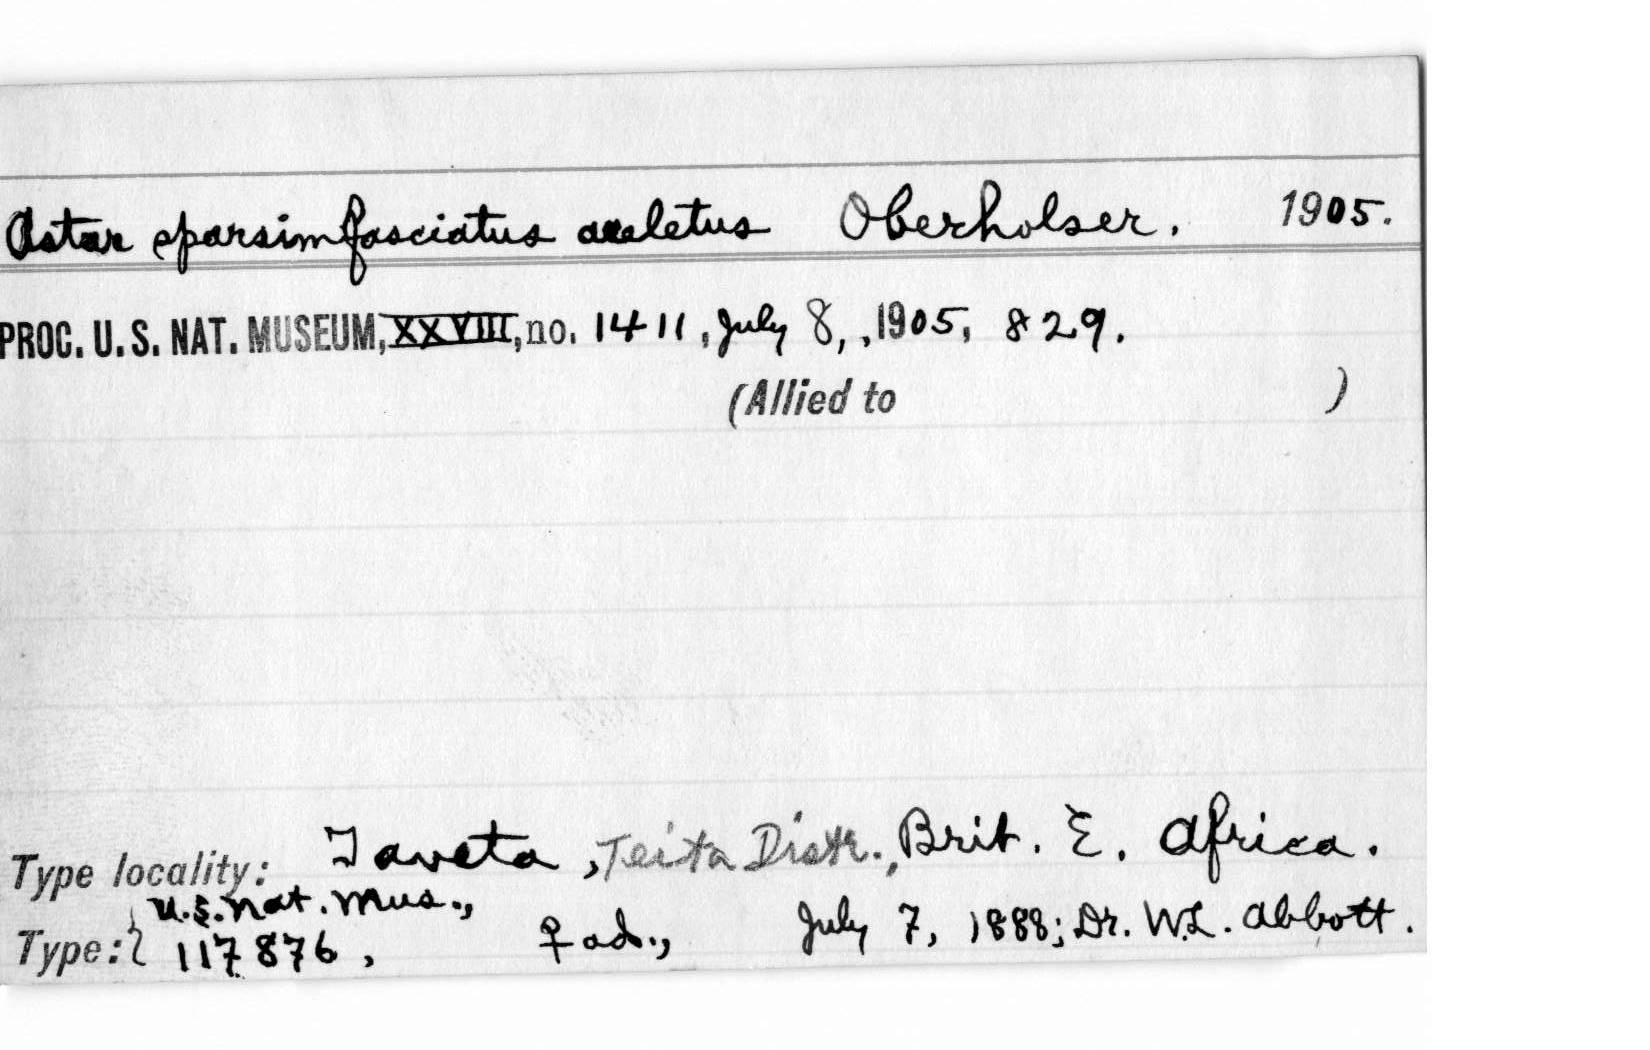 Astur sparsimfasciatus aceletus Oberholser. 1905.
PROC. U.S. NAT. MUSEUM, XXVIII, no. 1411, July 8, , 1905, 829.
(Allied to )
Type locality: Taveta, Teita Distr., Brit. E. Africa.
U.S. Nat. Mus.,
Type: { 117876, ♀ ad., July 7, 1888; Dr. W.L. Abbott.